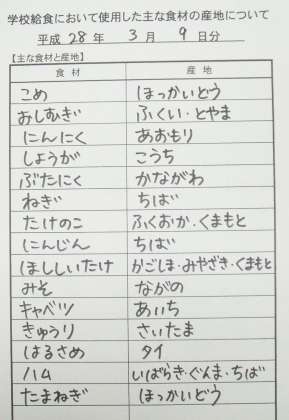 学校給食において使用した主な食材の産地について
平成 28 年 3 月 9 日分
【主な食材と産地】
食材 産地
こめ ほっかいどう
おしむぎ ふくい・とやま
にんにく あおもり
しょうが こうち
ぶたにく かながわ
ねぎ ちば
たけのこ ふくおか、くまもと
にんじん ちば
ほししいたけ かごしま・みやざき・くまもと
みそ ながの
キャベツ あいち
きゅうり さいたま
はるさめ タイ
ハム いばらき・ぐんま・ちば
たまねぎ ほっかいどう